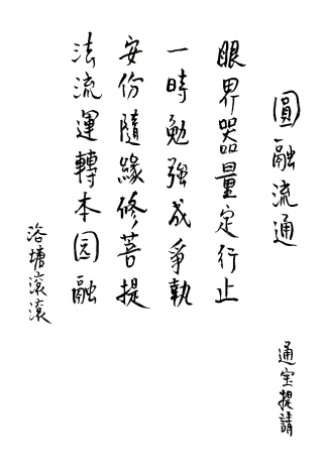 圓融流通
通宝提請
眼界器量定行止
一時勉强成爭執
安份隨緣修菩提
法流運轉本园融
洛塘滾滾